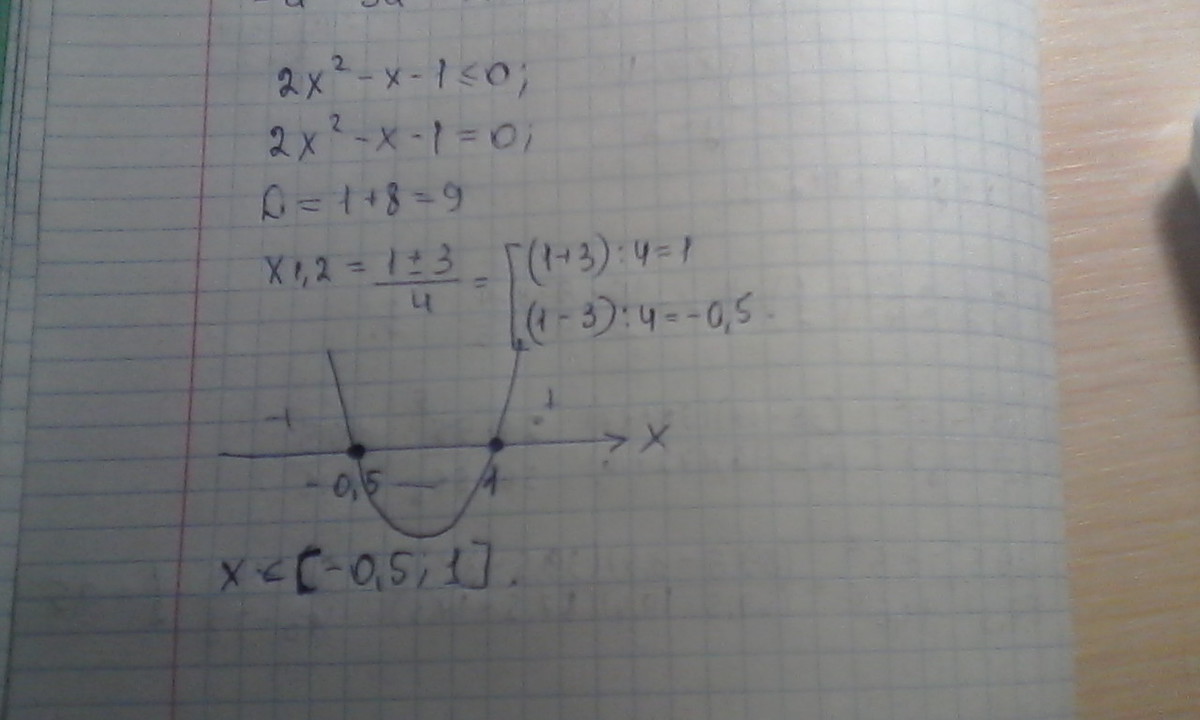 2x² - x - 1 ≤ 0;
2x² - x - 1 = 0;
D = 1 + 8 = 9
x1,2 = (1 ± 3)/4 = [ (1+3) : 4 = 1
(1 - 3) : 4 = -0,5.
+ +
x
-0,5 — 1
x ∈ [-0,5; 1].